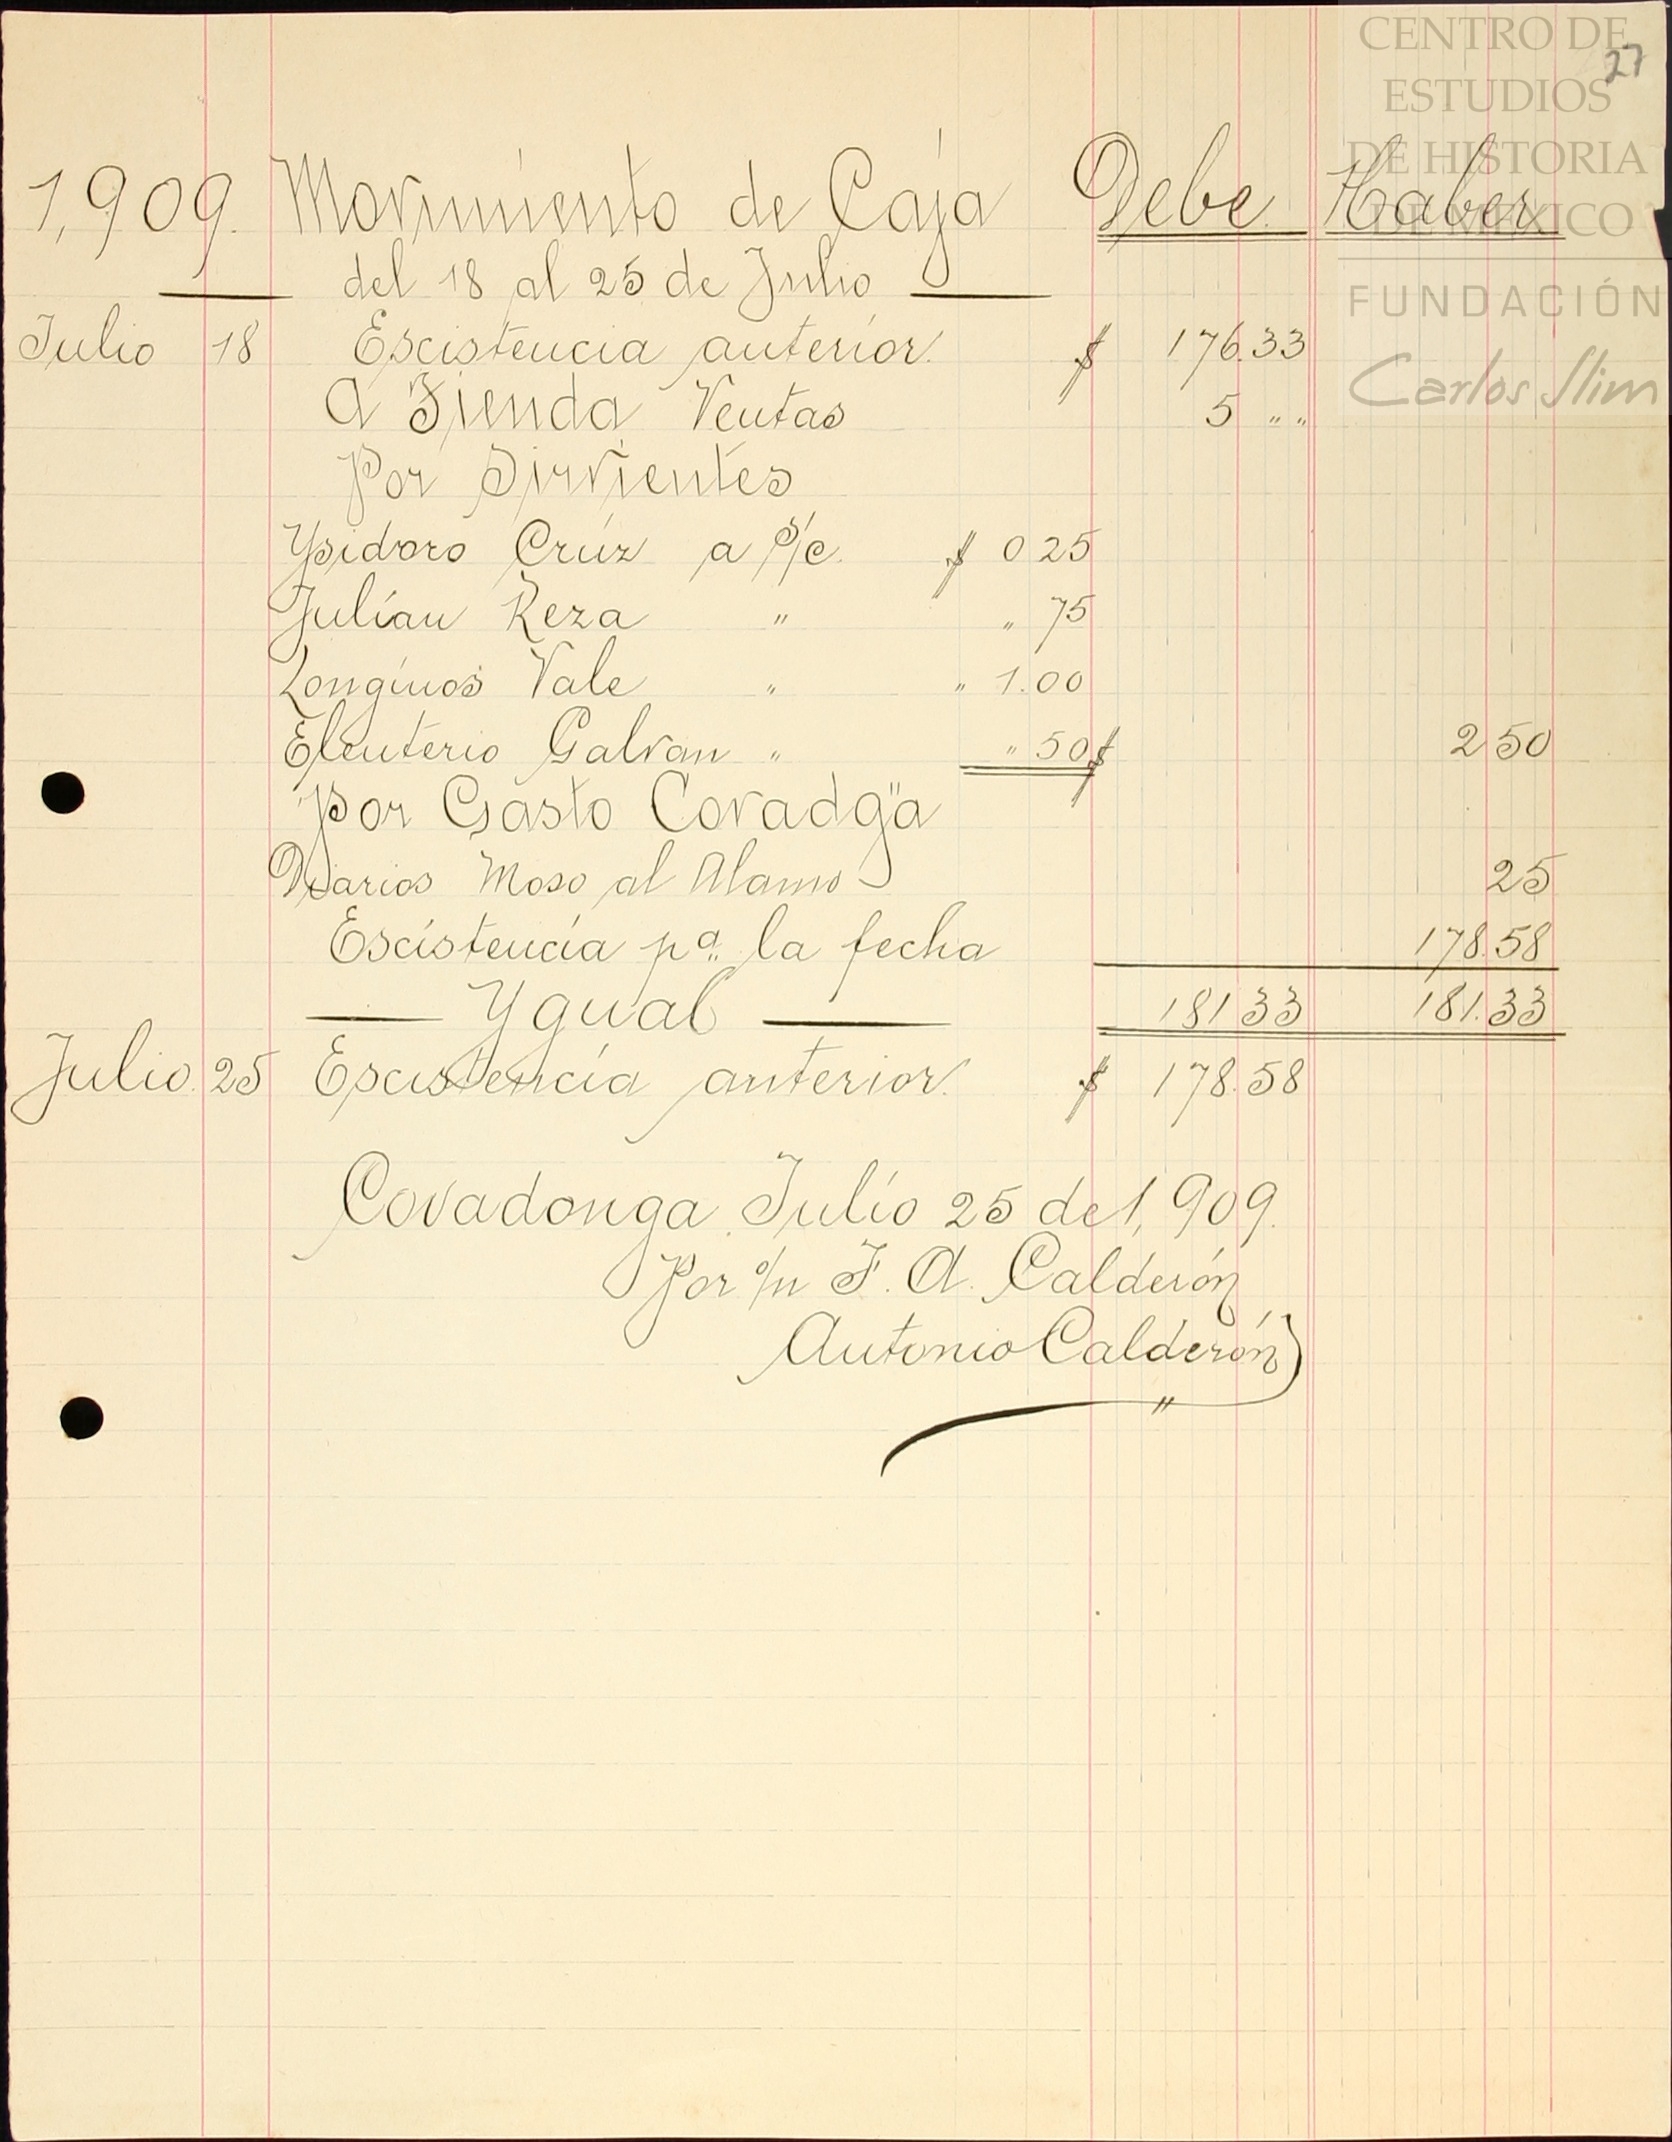 CENTRO DE
ESTUDIOS
DE HISTORIA
DE MÉXICO
FUNDACIÓN
Carlos Slim
27
1,909. Movimiento de Caja Debe Haber
del 18 al 25 de Julio
Julio 18 Escistencia anterior. $ 176.33
A Tienda Ventas 5 " "
Por Sirvientes
Ysidoro Crúz a S/c. $ 0 25
Julían Reza " " 75
Longinos Vale " " 1.00
Eleuterio Galvan " " 50 $ 2 50
Por Gasto Covadgä
Diarios Moso al Alamo 25
Escistencia pª la fecha 178.58
Ygual 181 33 181.33
Julio. 25 Escistencia anterior. $ 178.58
Covadonga Julio 25 de 1,909.
Por o/n F. A. Calderón
Antonio Calderón